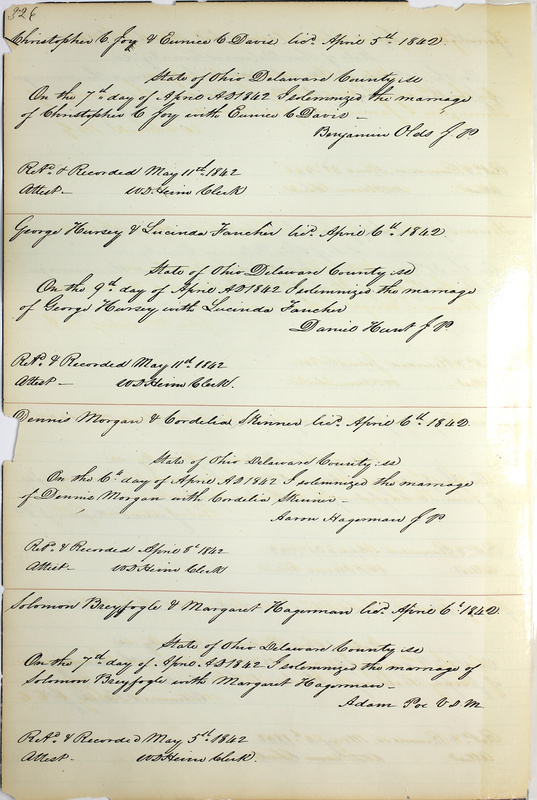 326
Christopher C Joy & Eunice C Davis licd. April 5th 1842
State of Ohio Delaware County ss
On the 7th day of April AD 1842 I solemnized the marriage
of Christopher C Joy with Eunice C Davis —
Benjamin Olds J P.
Retd. & Recorded May 11th 1842
Attest — W D Heim Clerk
George Hursey & Lucinda Faucher licd. April 6th 1842
State of Ohio Delaware County ss
On the 9th day of April AD 1842 I solemnized the marriage
of George Hursey with Lucinda Faucher
Daniel Hunt J P
Retd. & Recorded May 11th 1842
Attest — W D Heim Clerk.
Dennis Morgan & Cordelia Skinner licd. April 6th 1842
State of Ohio Delaware County ss
On the 6th day of April AD 1842 I solemnized the marriage
of Dennis Morgan with Cordelia Skinner —
Aaron Hagerman J P
Retd. & Recorded April 8th 1842
Attest — W D Heim Clerk
Solomon Breyfogle & Margaret Hagerman licd. April 6th 1842
State of Ohio Delaware County ss
On the 7th day of April AD 1842 I solemnized the marriage of
Solomon Breyfogle with Margaret Hagerman —
Adam Poe V D M
Retd. & Recorded May 5th 1842
Attest — W D Heim Clerk.